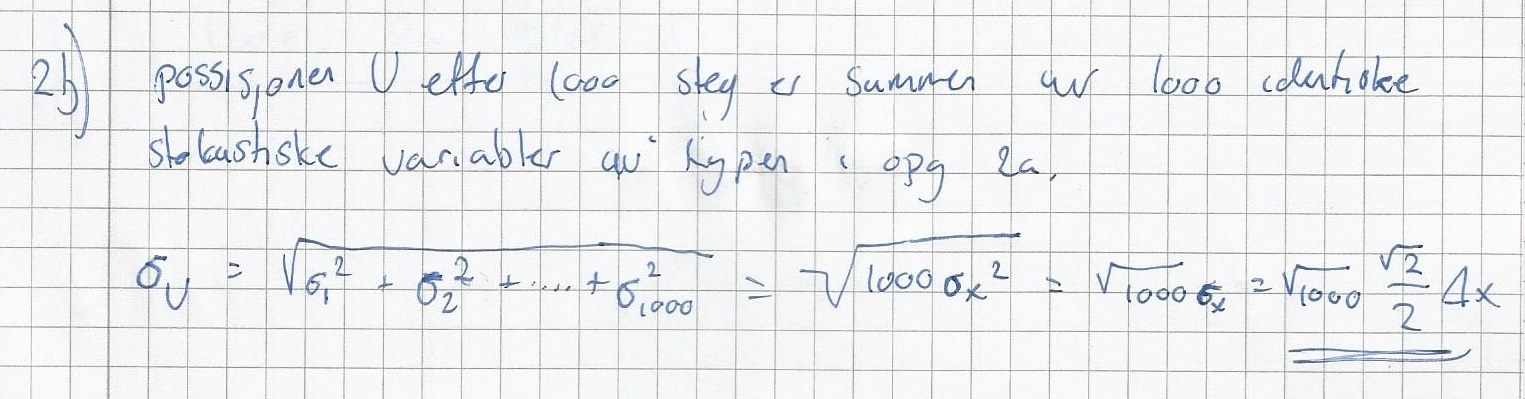 2b) possisjonen U etter 1000 steg er summen av 1000 identiske
stokastiske variabler av typen i opg 2a.
σ_U = √(σ₁² + σ₂² + ..... + σ₁₀₀₀²) = √(1000 σₓ²) = √1000 σₓ = √1000 √2/2 Δx